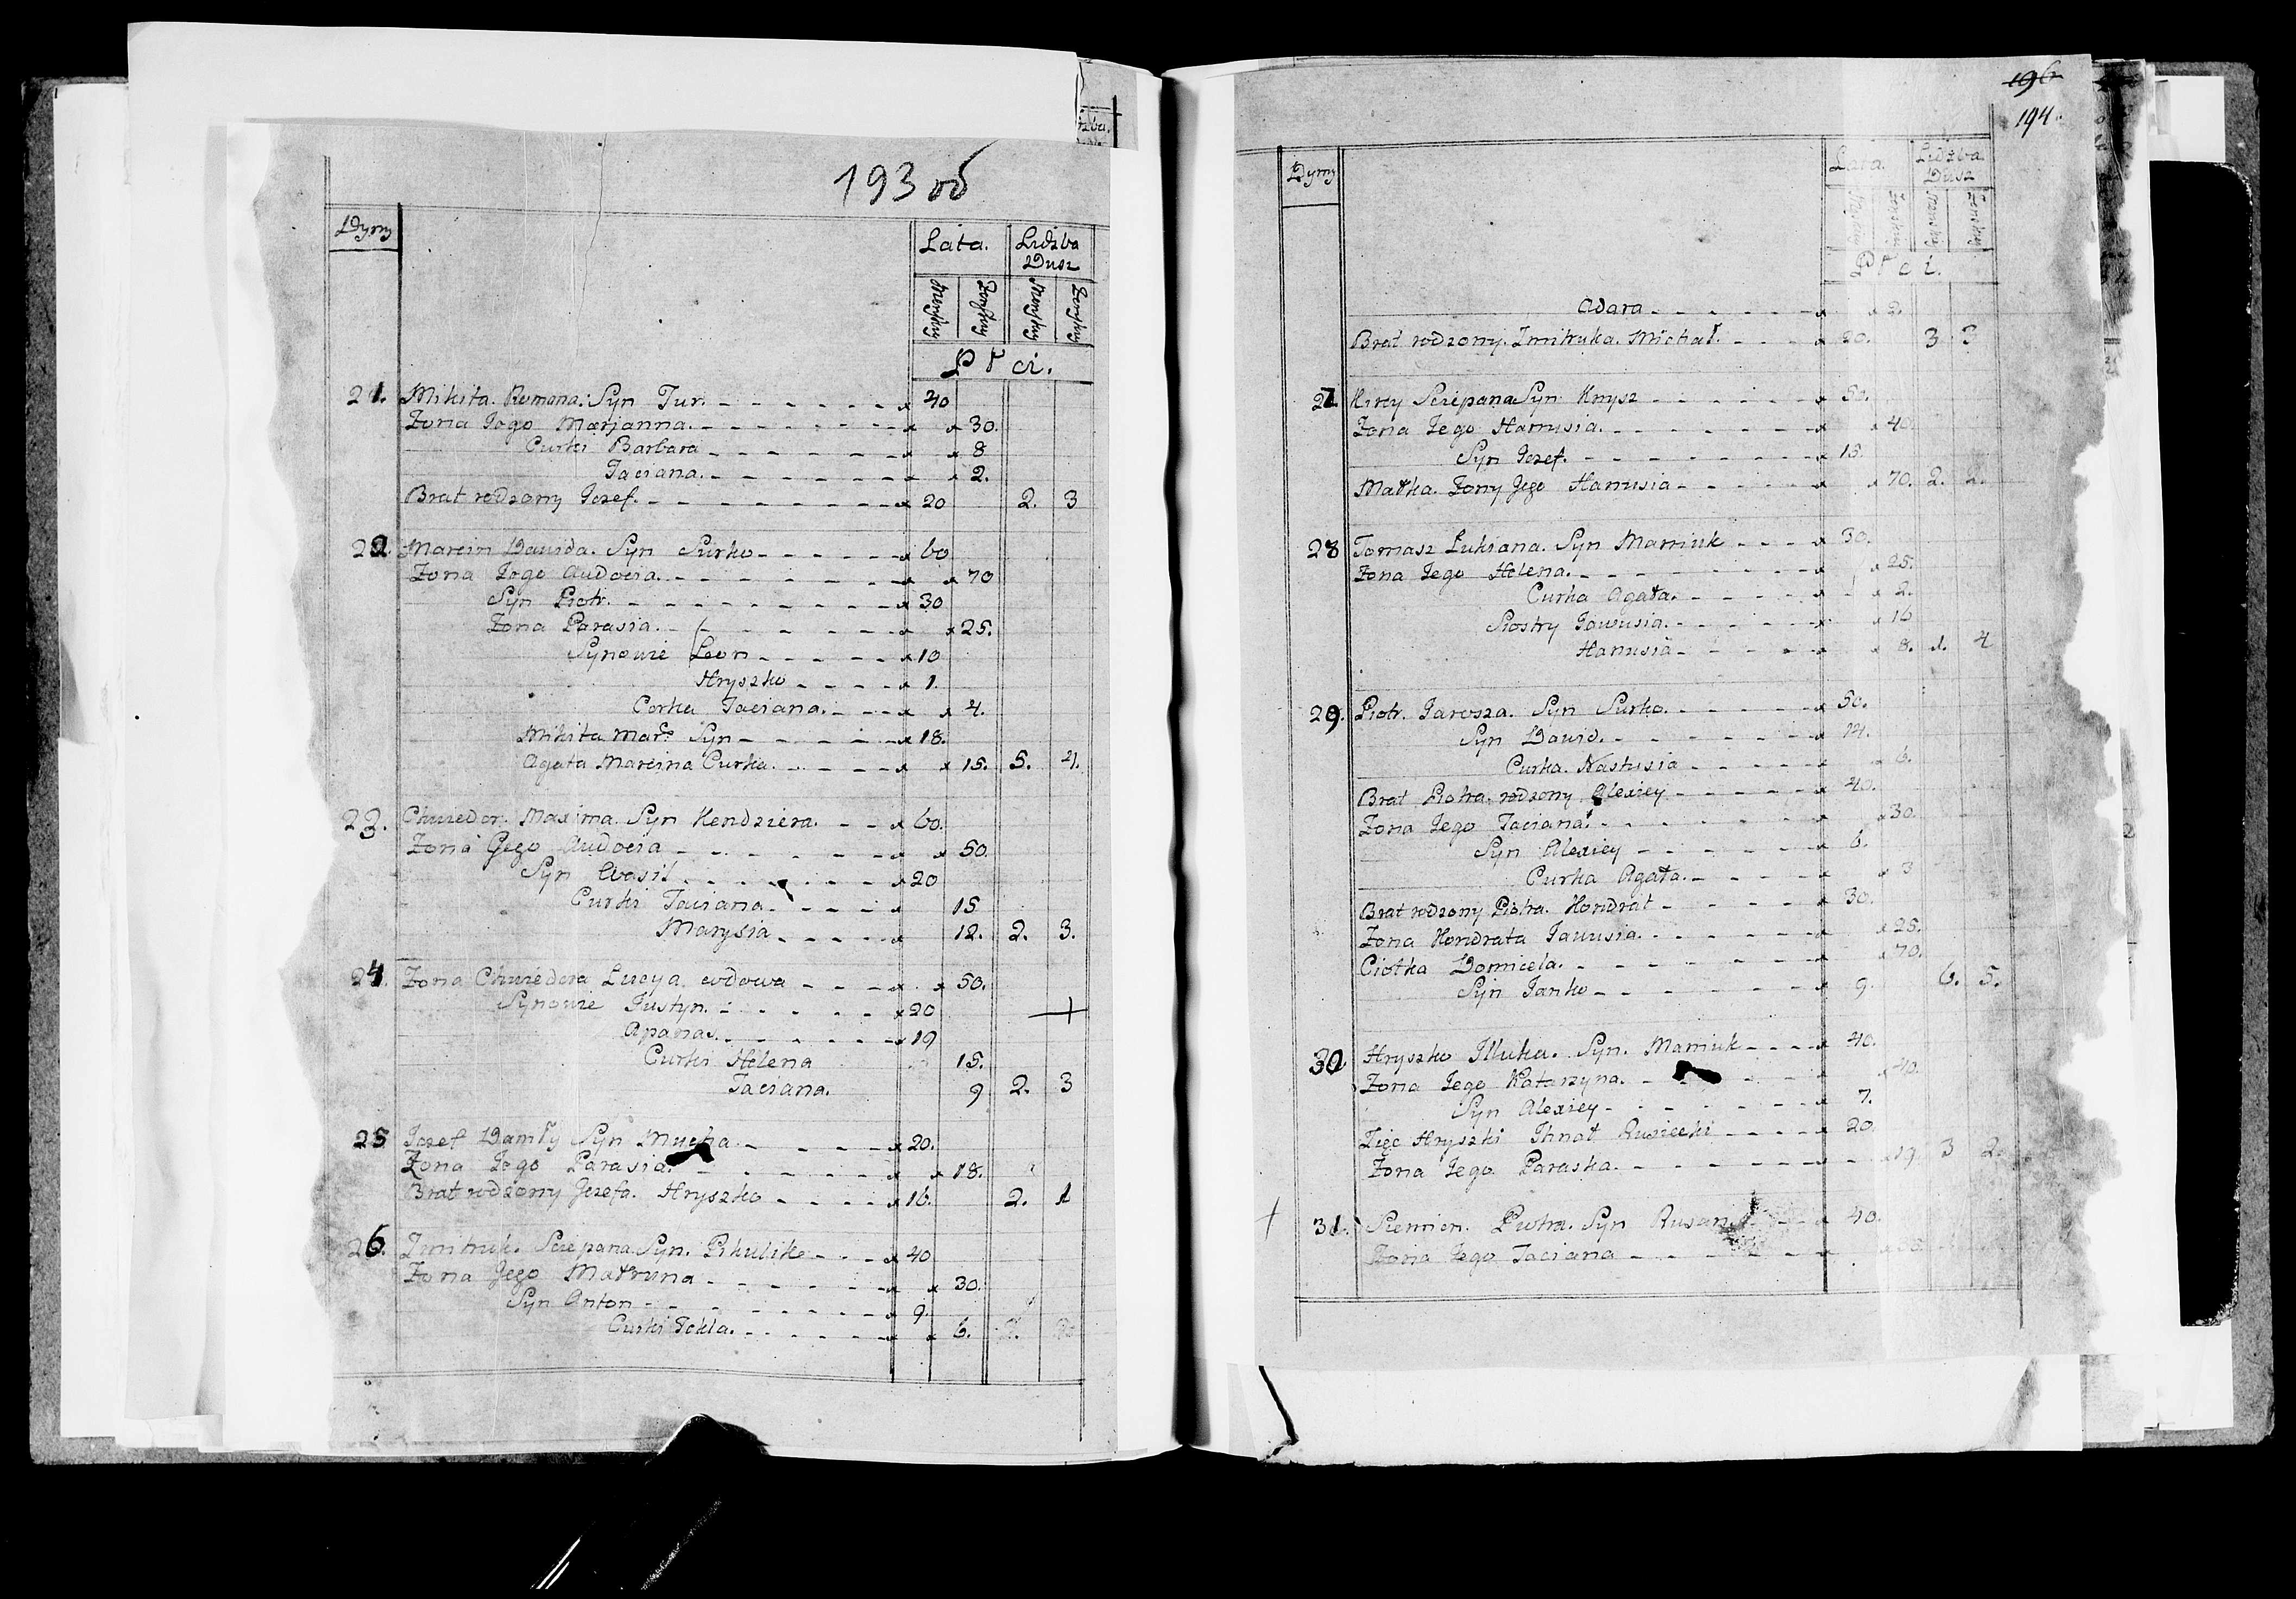 193 об
Dymy
Lata. Liczba Dusz
Męskiey Żenskiey Męskiey Żenskiey
Płci.
21. Mikita Romana Syn Tur. 40
Żona Jego Marjanna. 30.
Curki Barbara 8
Taciana. 2.
Brat rodzony Jozef. 20 2. 3
22. Marcin Dawida. Syn Surko 60
Żona Jego Audocia. 70
Syn Piotr. 30
Żona Parasia. 25.
Synowie Leon 10
Hryszko 1.
Corka Taciana. 4.
Mikita Mar: Syn 18.
Agata Marcina Curka. 15. 5. 4.
23. Chwiedor Maxima Syn Kendziera. 60.
Żona Jego Audocia 50.
Syn Wasil 20
Curki Taciana 15
Marysia 12. 2. 3.
24. Żona Chwiedora Lucya wdowa 50.
Synowie Justyn. 20
Apanas. 19
Curki Helena 15.
Taciana. 9 2. 3
25 Jozef Daniły Syn Mucha. 20.
Żona Jego Parasia. 18.
Brat rodzony Jozefa. Hryszko 16. 2. 1
26. Zmitruk. Sciepana Syn. Pikulike 40
Żona Jego Matruna 30.
Syn Anton 9.
Curki Tekla. 6.
196
194.
Dymy
Lata. Liczba Dusz
Męskiey Żenskiey Męskiey Żenskiey
Płci.
Adara 2.
Brat rodzony Zmitruka. Michał. 20. 3 3
27. Kirey Sciepana Syn Knysz 50.
Żona Jego Hanusia. 40
Syn Jozef. 13.
Matka Żony Jego Hanusia 70. 2. 2.
28 Tomasz Łukiana. Syn Maniuk 30.
Żona Jego Helena. 25.
Curka Agata. 2.
Siostry Jawusia. 16
Hanusia 8. 1. 4
29. Piotr. Jarosza. Syn Surko. 50.
Syn Dawid. 14.
Curka. Nastusia 6.
Brat Piotra rodzony Alexiey 40.
Żona Jego Taciana. 30.
Syn Alexiey 6.
Curka Agata. 3
Brat rodzony Piotra. Kondrat 30.
Żona Kondrata Jawusia. 25.
Ciotka Domicela. 70.
Syn Janko 9. 6. 5.
30 Hryszko Illuka. Syn. Maniuk 40.
Żona Jego Katarzyna. 40.
Syn Alexiey 7.
Zięc Hryszki Ihnat Rusiecki 20.
Żona Jego Paraska. 19. 3 2.
31. Siemien. Piotra. Syn 40.
Żona Jego Taciana